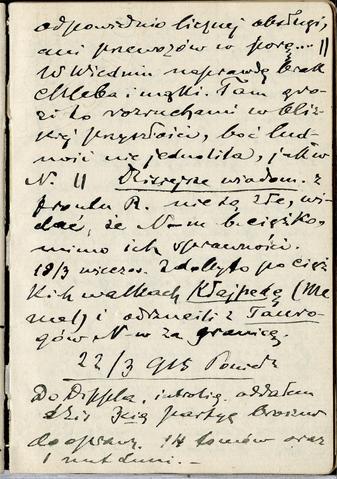 odpowiednio licznej obsługi,
ani przewozów w porę.... ||
W Wiedniu naprawdę brak
chleba i mąki. Tam gro-
zi to rozruchami w bliz-
kiej przyszłości, boć lud-
ność niejednolita, jak w
N. || Dzisiejsze wiadom. z
frontu R. nie są złe, wi-
dać, że N-m b. ciężko
mimo ich sprawności.
18/3 wieczor. Zdobyto po cięż-
kich walkach Kłajpedę (Me-
mel) i odrzucili z Tauro-
gów N-w za granicę.
22/3 915 Poniedz
Do Dippla, introlig. oddałem
dziś partyę broszur
do oprawy. 14 tomów oraz
1